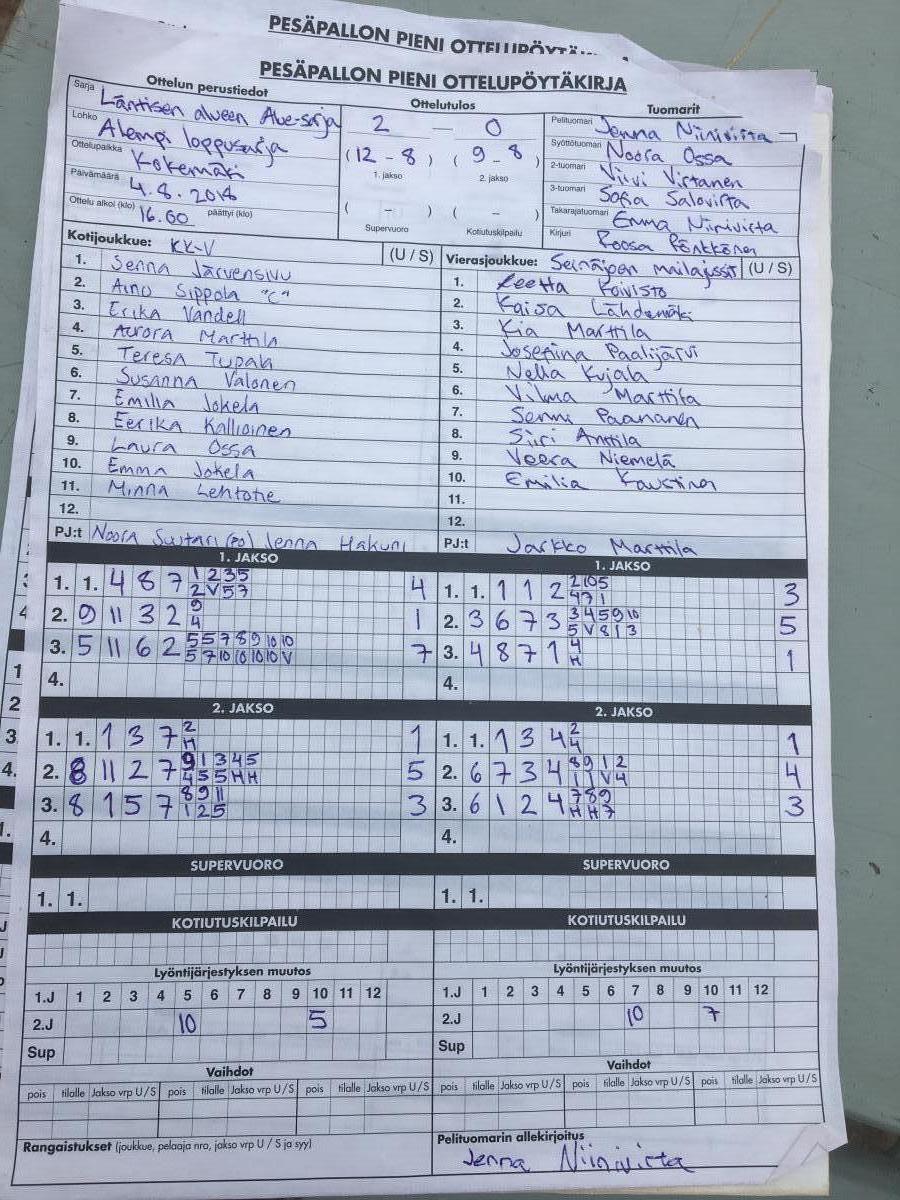 PESÄPALLON PIENI
PESÄPALLON PIENI OTTELUPÖYTÄKIRJA
Ottelun perustiedot
Sarja Läntisen alueen Alue-sarja
Lohko Alempi loppusarja
Ottelupaikka Kokemäki
Päivämäärä 4.8.2018
Ottelu alkoi (klo) 16.00 päättyi (klo)
Ottelutulos
2 — 0
(12 - 8) (9 - 8)
1. jakso 2. jakso
( - ) ( - )
Supervuoro Kotiutuskilpailu
Tuomarit
Pelituomari Jenna Niinivirta
Syöttötuomari Noora Ossa
2-tuomari Viivi Virtanen
3-tuomari Sofia Salovirta
Takarajatuomari Emma Niinivirta
Kirjuri Roosa Pönkkönen
Kotijoukkue: KK-V (U / S)
1. Senna Järvensivu
2. Aino Sippola "C"
3. Erika Vandell
4. Aurora Marttila
5. Teresa Tupala
6. Susanna Valonen
7. Emilia Jokela
8. Eerika Kallioinen
9. Laura Ossa
10. Emma Jokela
11. Minna Lehtotie
12.
PJ:t Noora (PO) Jenna Hakuni
Vierasjoukkue: Seinäjoen mailajussit (U / S)
1. Reetta Koivisto
2. Kaisa Lähdemäki
3. Kia Marttila
4. Josefina Paalijärvi
5. Nella Kujala
6. Vilma Marttila
7. Senni Paananen
8. Siiri Anttila
9. Veera Niemelä
10. Emilia Kaustina
11.
12.
PJ:t Jarkko Marttila
1. JAKSO
1. 1. 4 8 7 1 2 3 5 4
2 V 5 7
2. 9 11 3 2 9 1
4
3. 5 11 6 2 5 5 7 8 9 10 10 7
5 7 10 10 10 10 V
4.
1. JAKSO
1. 1. 1 1 2 2 10 5 3
4 7 1
2. 3 6 7 3 3 4 5 9 10 5
5 V 8 1 3
3. 4 8 7 1 4 1
H
4.
2. JAKSO
1. 1. 1 3 7 2 1
H
2. 8 11 2 7 9 1 3 4 5 5
4 5 5 H H
3. 8 1 5 7 8 9 11 3
1 2 5
4.
2. JAKSO
1. 1. 1 3 4 2 1
4
2. 6 7 3 4 8 9 1 2 4
1 1 V 4
3. 6 1 2 4 7 8 9 3
H H 7
4.
SUPERVUORO
1. 1.
SUPERVUORO
1. 1.
KOTIUTUSKILPAILU
KOTIUTUSKILPAILU
Lyöntijärjestyksen muutos
1.J 1 2 3 4 5 6 7 8 9 10 11 12
2.J 10 5
Sup
Lyöntijärjestyksen muutos
1.J 1 2 3 4 5 6 7 8 9 10 11 12
2.J 10 7
Sup
Vaihdot
pois tilalle Jakso vrp U / S pois tilalle Jakso vrp U / S pois tilalle Jakso vrp U / S
Vaihdot
pois tilalle Jakso vrp U / S pois tilalle Jakso vrp U / S pois tilalle Jakso vrp U / S
Rangaistukset (joukkue, pelaaja nro, jakso vrp U / S ja syy)
Pelituomarin allekirjoitus
Jenna Niinivirta